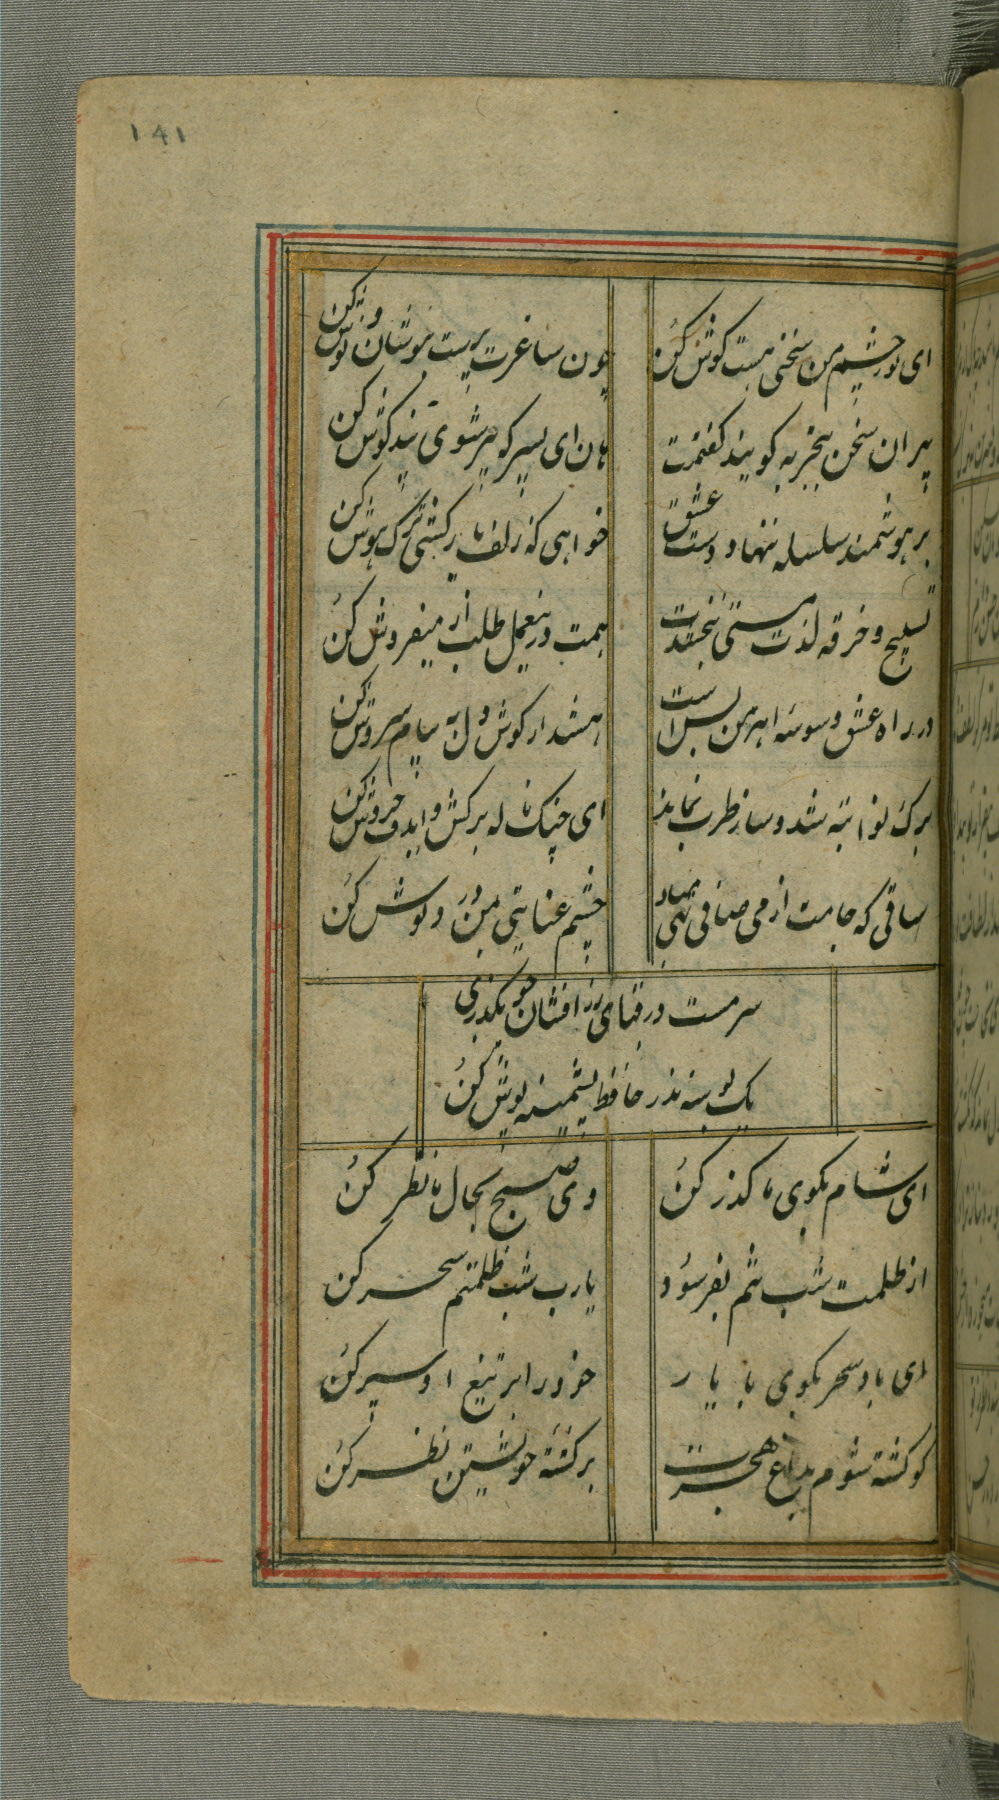 ۱۴۱
ای نور چشم من سخنی هست گوش کن
چون ساغرت پرست بنوشان و نوش کن
پیران سخن بتجربه گویند گفتمت
هان ای پسر که پیر شوی پند گوش کن
بر هوشمند سلسله ننهاد دست عشق
خواهی که زلف یار کشی ترک هوش کن
تسبیح و خرقه لذت مستی نبخشدت
همت درین عمل طلب از میفروش کن
در راه عشق وسوسه اهرمن بسی است
هشدار گوش دل به پیام سروش کن
برگ نوا تبه شد و ساز طرب نماند
ای چنگ ناله برکش و ای دف خروش کن
ساقی که جامت از می صافی تهی مباد
چشم عنایتی بمن درد نوش کن
سرمست در قبای زر افشان چو بگذری
یک بوسه نذر حافظ پشمینه پوش کن
ای شام بکوی ما گذر کن
وی صبح بحال ما نظر کن
از ظلمت شب تنم بفرسود
یارب شب ظلمتم سحر کن
ای باد سحر بکوی با یار
خود را بر تیغ او سپر کن
گو کشته شوم بداغ هجرت
بر کشته خویشتن نظر کن